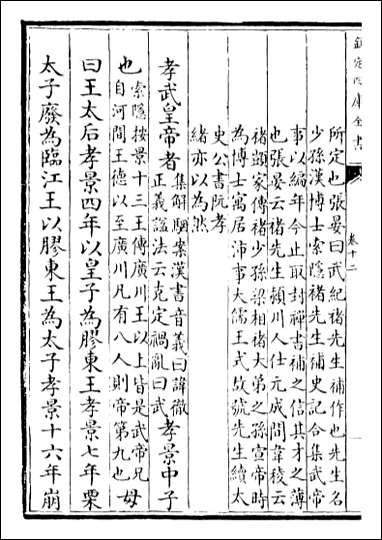 欽定四庫全書
卷十二
所定也張晏曰武紀褚先生補作也先生名
少孫漢博士索隱褚先生補史記合集武帝
事以編年今止取封禪書補之信其才之薄
也張云褚先生潁川人仕元成間韋稜云
褚顗家傳褚少孫梁相褚大弟之孫宣帝時
為博士寓居沛事大儒王式故號先生續太
史公書阮孝
緒亦以為然
孝武皇帝者集解駰案漢書音義曰諱徹
正義諡法云克定禍亂曰武孝景中子
也索隱按景十三王傳廣川王以上皆是武帝兄
自河間王德以至廣川凡有八人則帝第九也母
曰王太后孝景四年以皇子為膠東王孝景七年栗
太子廢為臨江王以膠東王為太子孝景十六年崩